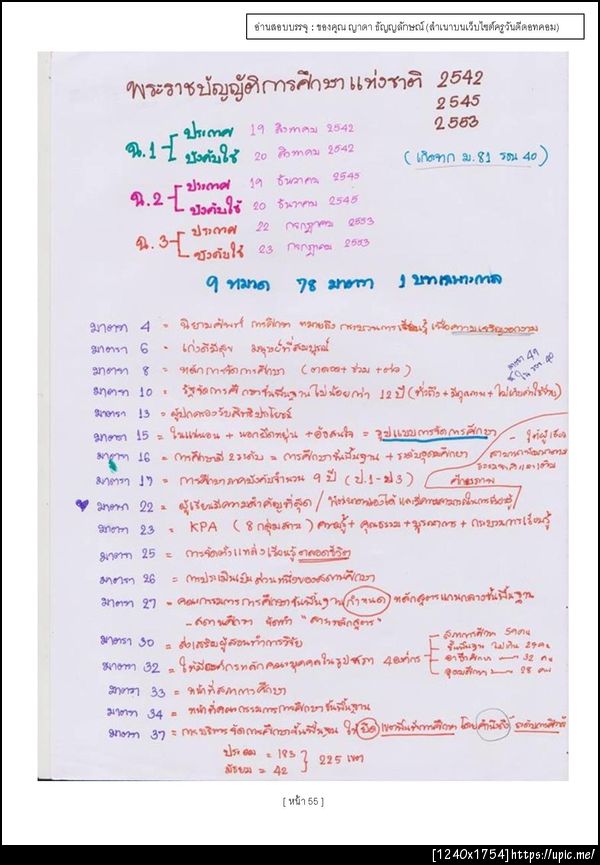 อ่านสอบบรรจุ : ของคุณ ญาดา ธัญญลักษณ์ (สำเนาบนเว็บไซต์ครูวันดีดอทคอม)
พระราชบัญญัติการศึกษาแห่งชาติ 2542
2545
2553
ฉ.1 ประกาศ 19 สิงหาคม 2542
บังคับใช้ 20 สิงหาคม 2542
(เกิดจาก ม.81 รธน 40)
ฉ.2 ประกาศ 19 ธันวาคม 2545
บังคับใช้ 20 ธันวาคม 2545
ฉ.3 ประกาศ 22 กรกฎาคม 2553
บังคับใช้ 23 กรกฎาคม 2553
9 หมวด 78 มาตรา 1 บทเฉพาะกาล
มาตรา 4 = นิยามศัพท์ การศึกษา หมายถึง กระบวนการเรียนรู้ เพื่อความเจริญงอกงาม
มาตรา 6 = เก่งดีมีสุข มนุษย์ที่สมบูรณ์
มาตรา 8 = หลักการจัดการศึกษา (ตลอด + ร่วม + ต่อ)
มาตรา 49
มาตรา 10 = รัฐจัดการศึกษาขั้นพื้นฐานไม่น้อยกว่า 12 ปี (ทั่วถึง + มีคุณภาพ + ไม่เก็บค่าใช้จ่าย)
มาตรา 13 = ผู้ปกครองรับสิทธิประโยชน์
มาตรา 15 = ในแน่นอน + นอกยืดหยุ่น + อัธสนใจ = รูปแบบการจัดการศึกษา
- ให้ผู้เรียน
มาตรา 16 = การศึกษามี 2 ระดับ = การศึกษาขั้นพื้นฐาน + ระดับอุดมศึกษา
มาตรา 17 = การศึกษาภาคบังคับจำนวน 9 ปี (ป.1-ม.3)
ศักยภาพ
มาตรา 22 = ผู้เรียนมีความสำคัญที่สุด /
มาตรา 23 = KPA (8 กลุ่มสาระ) ความรู้ + คุณธรรม + บูรณาการ + กระบวนการเรียนรู้
มาตรา 25 = การจัดตั้งแหล่งเรียนรู้ตลอดชีวิต
มาตรา 26 = การประเมินเป็นส่วนหนึ่งของสถานศึกษา
มาตรา 27 = คณะกรรมการการศึกษาขั้นพื้นฐาน กำหนด หลักสูตรแกนกลางขั้นพื้นฐาน
- สถานศึกษา จัดทำ "สาระหลักสูตร"
มาตรา 30 = ส่งเสริมผู้สอนทำการวิจัย
มาตรา 32 = ให้มีองค์กรหลักคณะบุคคลในรูปสภา 4 องค์กร
- สภาการศึกษา 59 คน
- ขั้นพื้นฐาน ไม่เกิน 27 คน
- อาชีวศึกษา 32 คน
- อุดมศึกษา 28 คน
มาตรา 33 = หน้าที่สภาการศึกษา
มาตรา 34 = หน้าที่คณะกรรมการการศึกษาขั้นพื้นฐาน
มาตรา 37 = การบริหารจัดการศึกษาขั้นพื้นฐาน ให้ ยึด เขตพื้นที่การศึกษา โดย คำนึงถึง
ประถม = 183
มัธยม = 42
225 เขต
[ หน้า 55 ]
[1240x1754]https://upic.me/